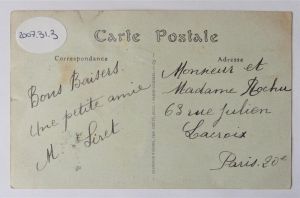 2007.31.3
Carte Postale
Correspondance
Adresse
Bons Baisers.
une petite amie
M. Siret
Monsieur et
Madame Rochu
63 rue Julien
Lacroix
Paris. 20e